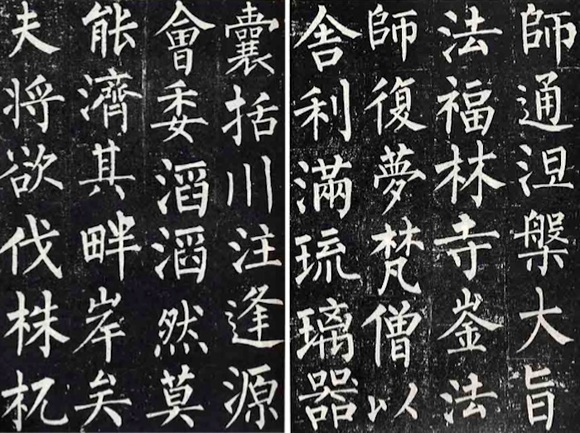 師通涅槃大旨
法福林寺崟法
師復夢梵僧以
舍利滿琉璃器
囊括川注逢源
會委滔滔然莫
能濟其畔岸矣
夫將欲伐株杌